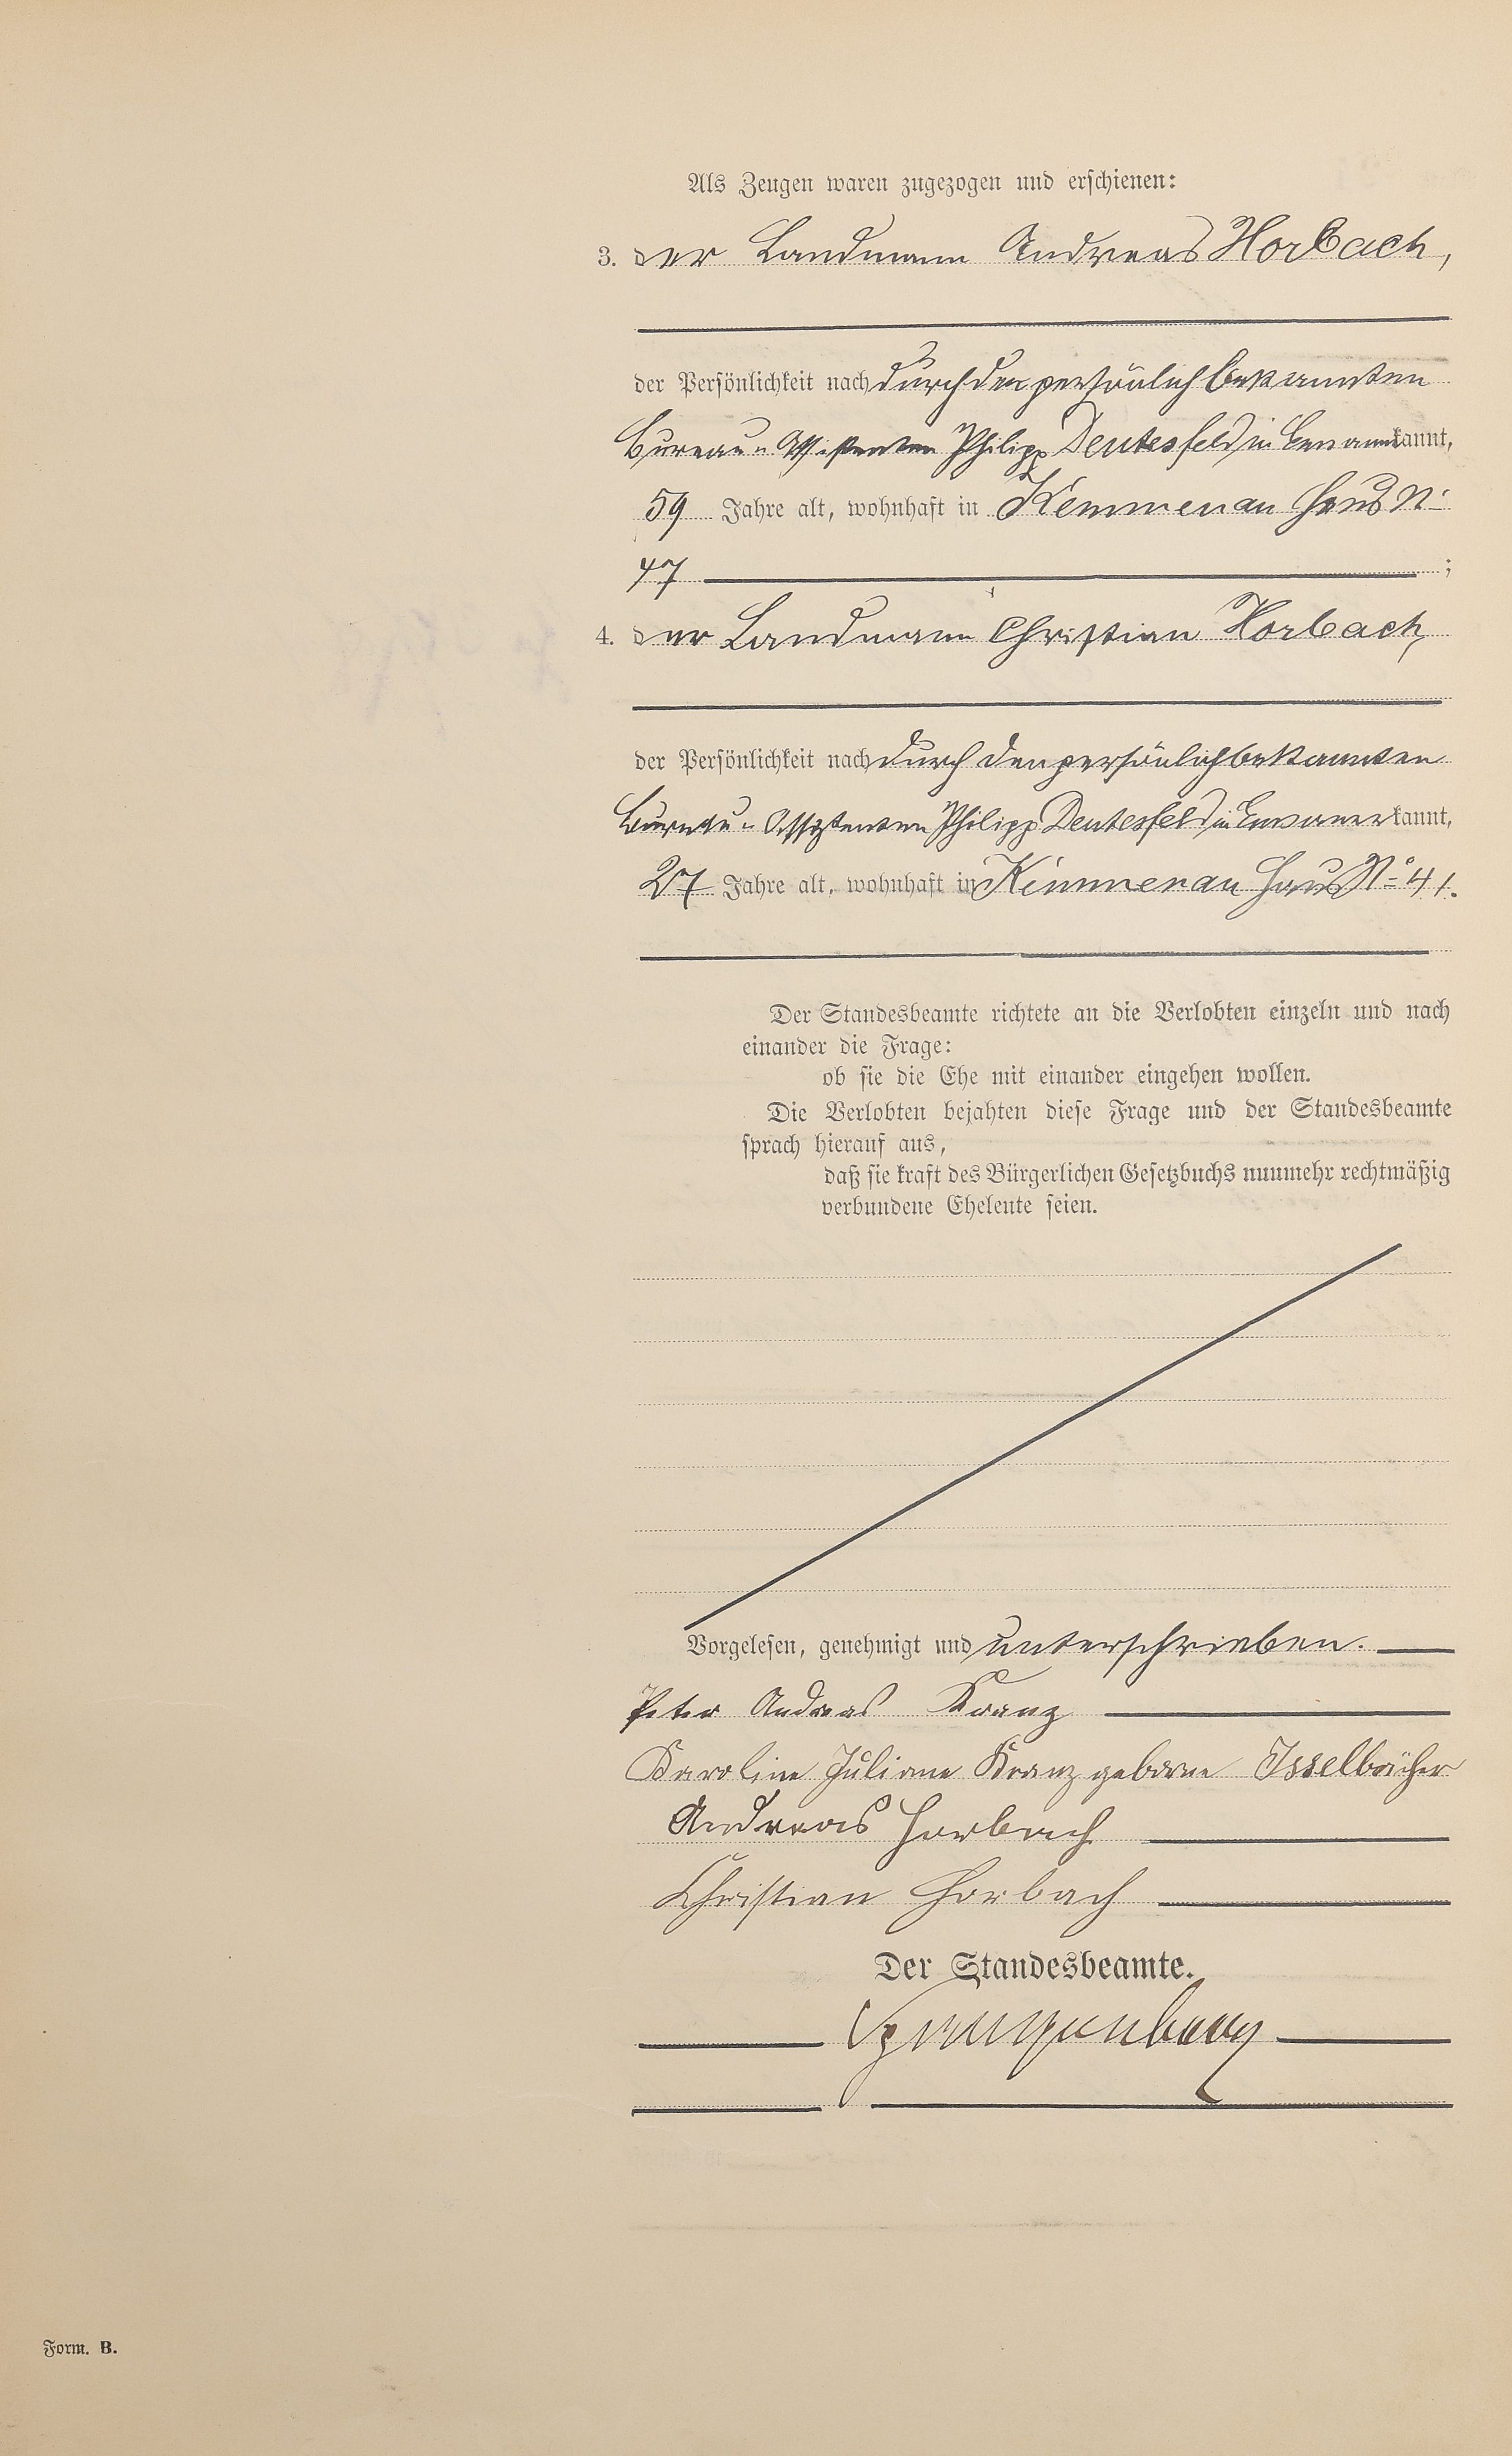 Als Zeugen waren zugezogen und erschienen:
3. der Landmann Andreas Horbach,
der Persönlichkeit nach durch den persönlich bekannten
Bureau-Assistenten Philipp Deutesfeld in Ems anerkannt,
59 Jahre alt, wohnhaft in Kemmenau Haus N°
47 ;
4. der Landmann Christian Horbach,
der Persönlichkeit nach durch den persönlich bekannten
Bureau-Assistenten Philipp Deutesfeld in Ems anerkannt,
27 Jahre alt, wohnhaft in Kemmenau Haus N° 41.
Der Standesbeamte richtete an die Verlobten einzeln und nach
einander die Frage:
ob sie die Ehe mit einander eingehen wollen.
Die Verlobten bejahten diese Frage und der Standesbeamte
sprach hierauf aus,
daß sie kraft des Bürgerlichen Gesetzbuchs nunmehr rechtmäßig
verbundene Eheleute seien.
Vorgelesen, genehmigt und unterschrieben.
Peter Andreas Kranz
Karoline Juliane Kranz geborne Isselbächer
Andreas Horbach
Christian Horbach
Der Standesbeamte.
Form. B.